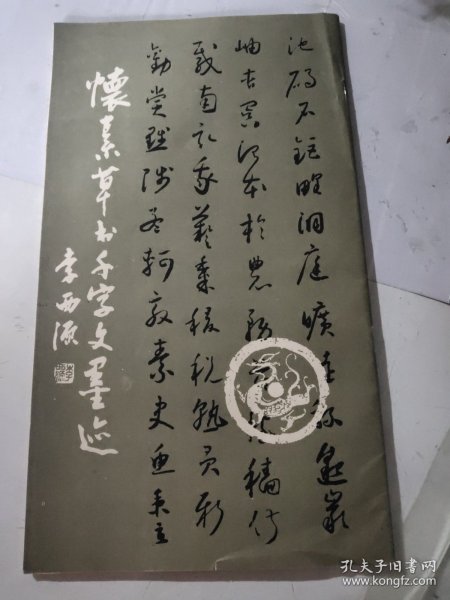 池碣石鉅野洞庭曠遠綿邈巖
岫杳冥治本於農務茲稼穡俶
載南畝我藝黍稷稅熟貢新
勸賞黜陟孟軻敦素史魚秉直
懷素草书千字文墨迹
孔夫子旧书网
www.kongfz.com